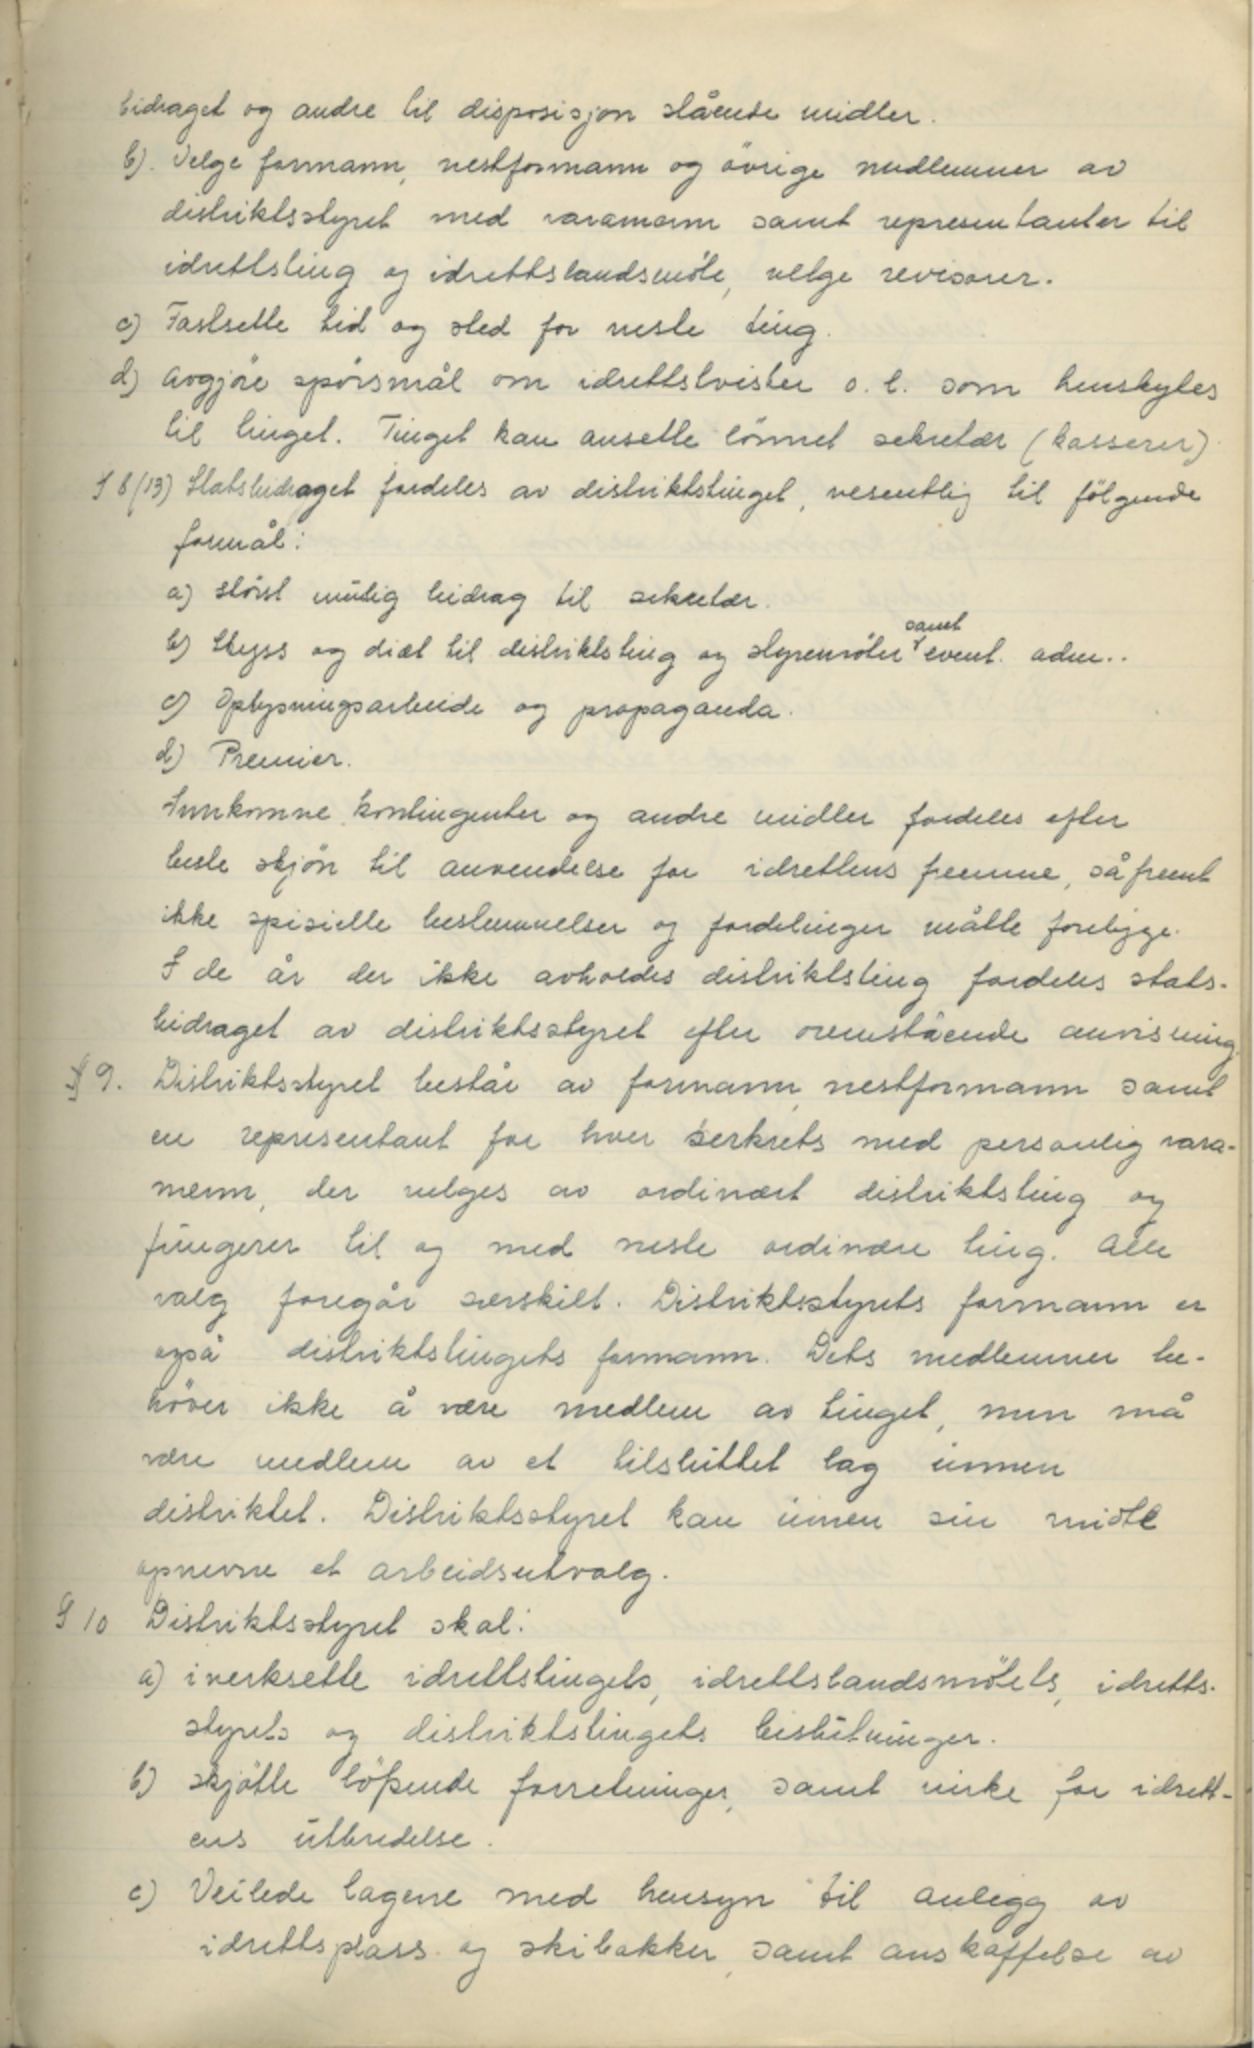 bidraget og andre til disposisjon stående midler.
b). Velge formann, nestformann og övrige medlemmer av
distriktsstyret med varamenn samt representanter til
idrettsting og idrettslandsmöte, velge revisorer.
c) Fastsette tid og sted for neste ting.
d) Avgjöre spörsmål om idrettstvister o.l. som henskytes
til tinget. Tinget kan ansette lönnet sekretær (kasserer).
§ 8 (13) Statsbidraget fordeles av distriktstinget, vesentlig til fölgende
formål:
a) störst mulig bidrag til sekretær.
b) Skyss og diæt til distriktsting og styremöter samt event. adm..
c) Oplysningsarbeide og propaganda.
d) Premier.
Innkomne kontingenter og andre midler fordeles efter
beste skjön til anvendelse for idrettens fremme, såfremt
ikke spisielle bestemmelser og fordelinger måtte foreligge.
I de år der ikke avholdes distriktsting fordeles stats-
bidraget av distriktsstyret efter ovenstående anvisning.
§ 9. Distriktsstyret består av formann, nestformann samt
en representant for hver særkrets med personlig vara-
menn, der velges av ordinært distriktsting og
fungerer til og med neste ordinære ting. Alle
valg foregår særskilt. Distriktsstyrets formann er
også distriktstingets formann. Dets medlemmer be-
höver ikke å være medlem av tinget, men må
være medlem av et tilsluttet lag innen
distriktet. Distriktsstyret kan innen sin midte
opnevne et arbeidsutvalg.
§ 10 Distriktsstyret skal:
a) iverksette idrettstingets, idrettslandsmötets, idretts-
styrets og distriktstingets beslutninger.
b) skjötte löpende forretninger, samt virke for idrett-
ens utbredelse.
c) Veilede lagene med hensyn til anlegg av
idrettsplass og skibakker, samt anskaffelse av